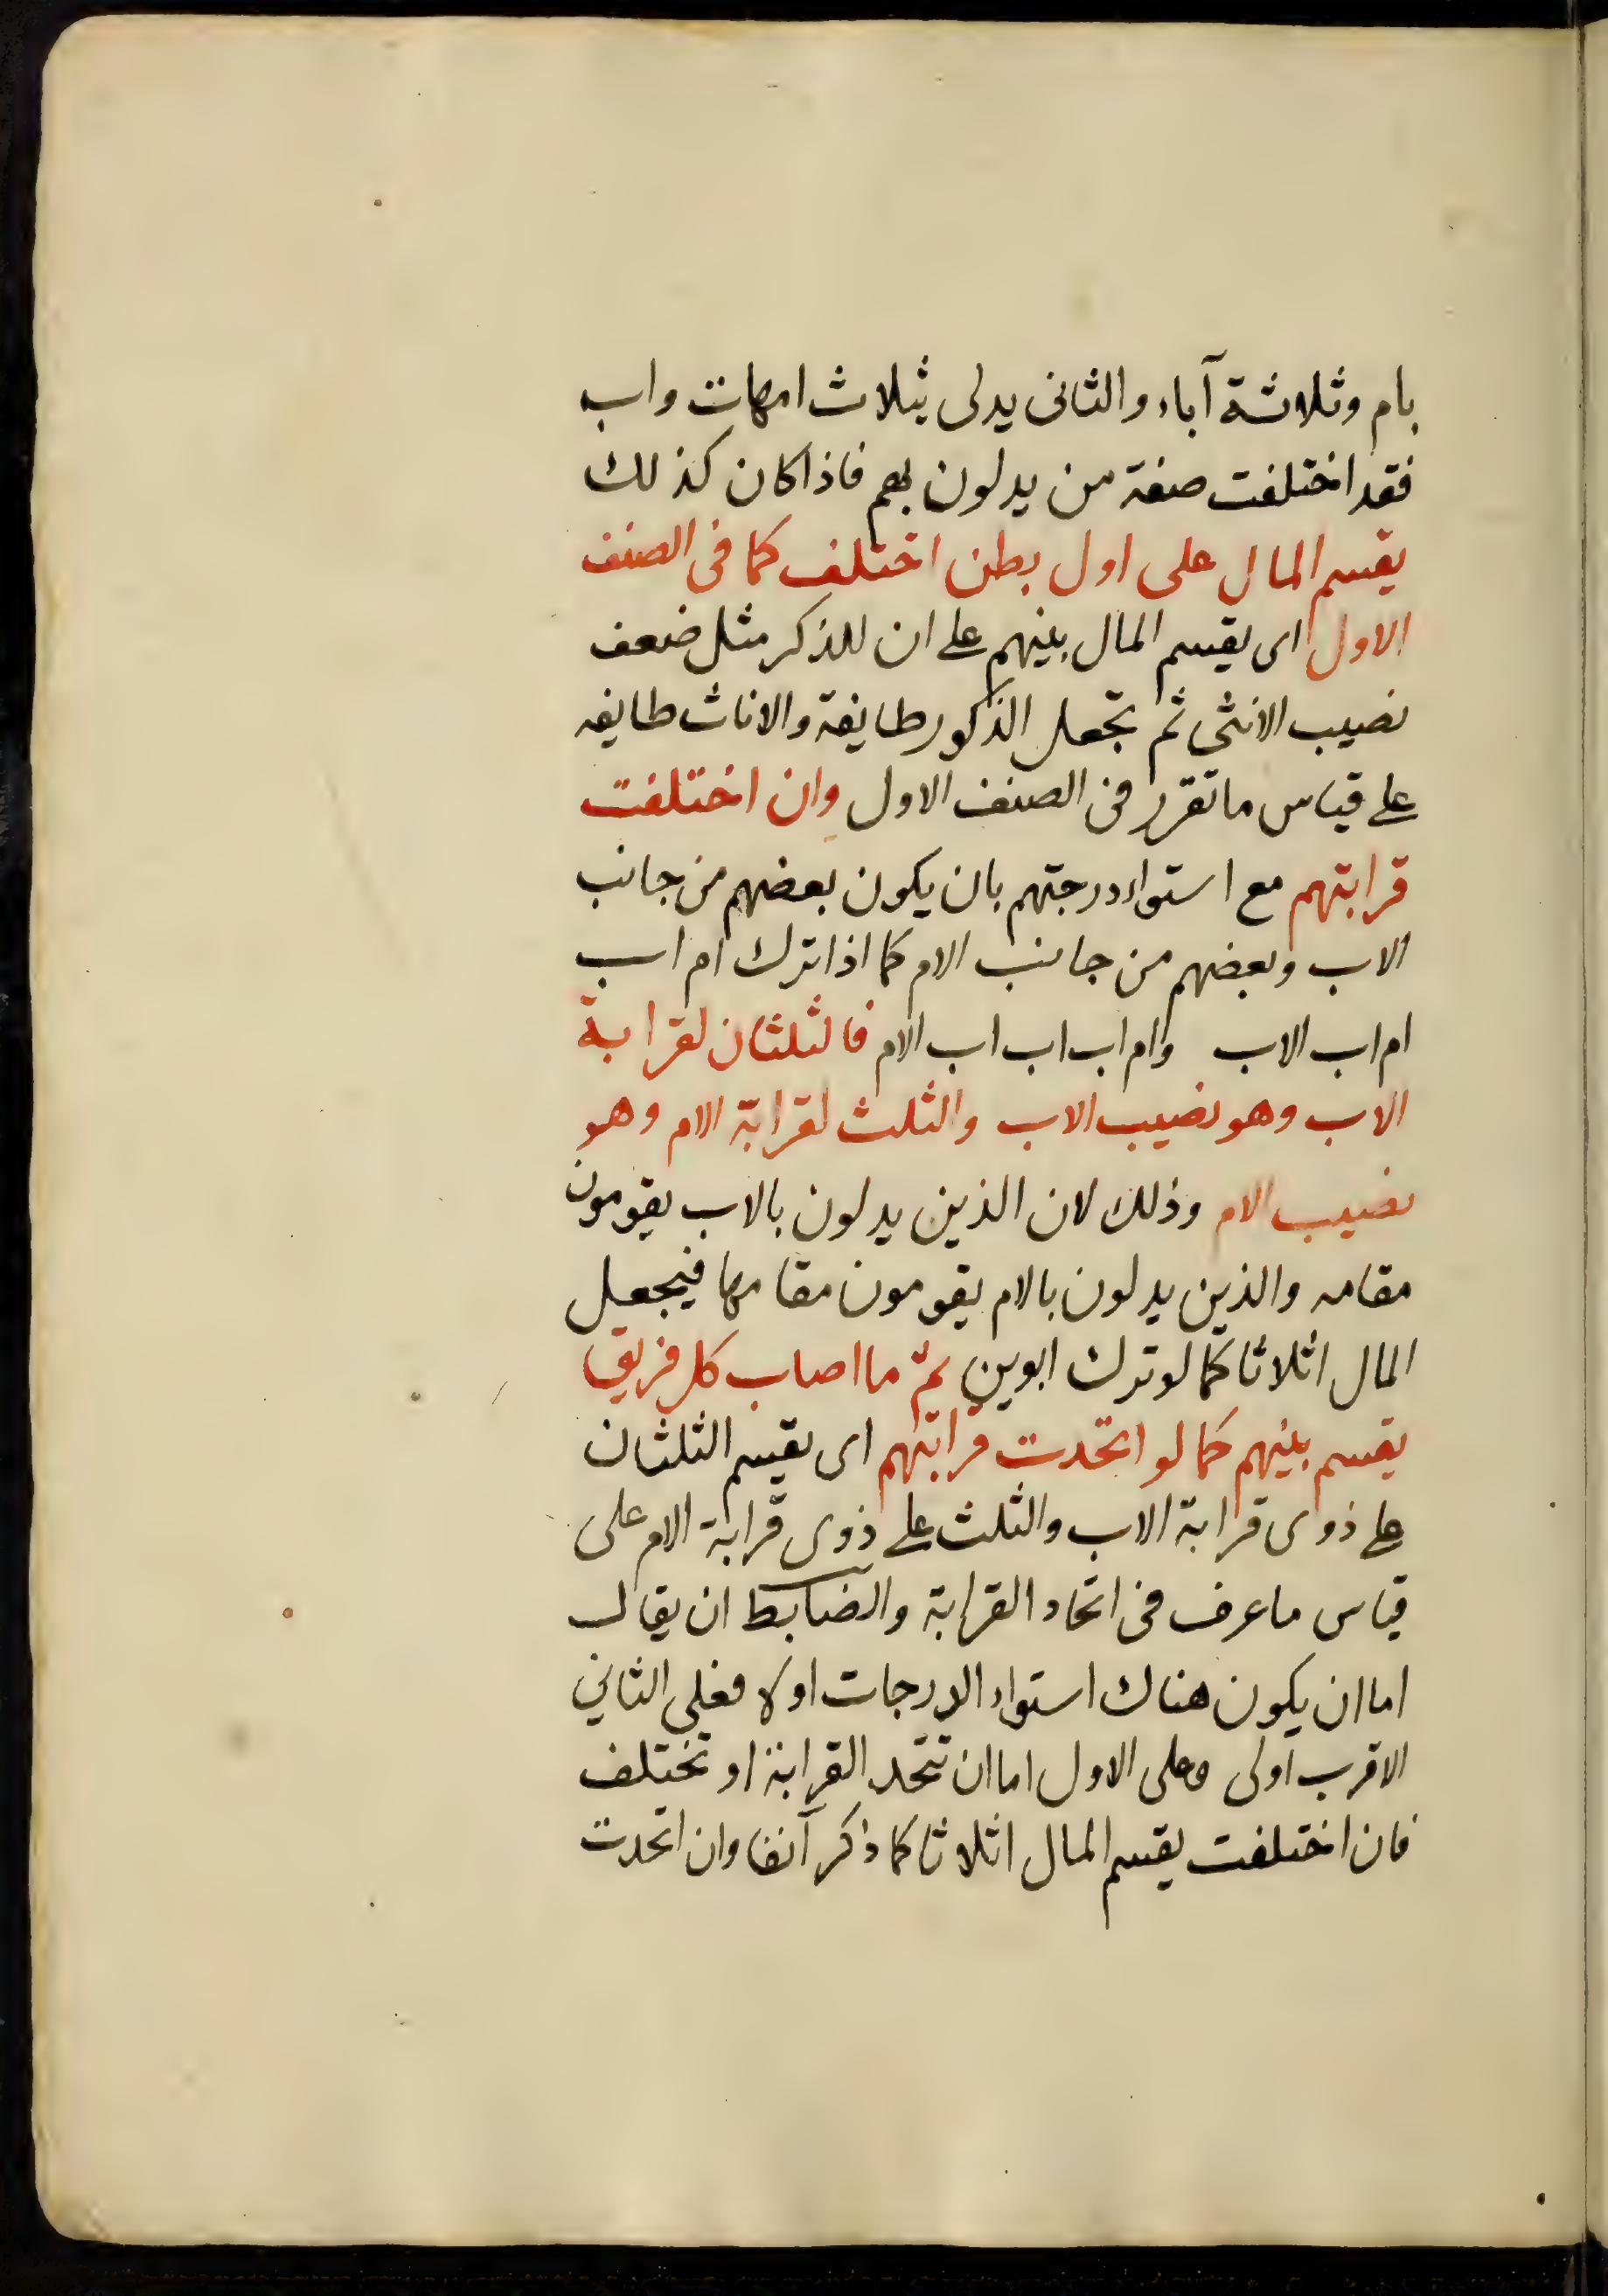 بام وثلاثة آباء والثانى يدلى بثلاث امهات واب
فقد اختلفت صفة من يدلون بهم فاذا كان كذلك
يقسم المال على اول بطن اختلف كما فى الصنف
الاول اى يقسم المال بينهم على ان للذكر مثل ضعف
نصيب الانثى ثم تجعل الذكور طايفة والاناث طايفه
على قياس ما تقرر فى الصنف الاول وان اختلفت
قرابتهم مع استواء درجتهم بان يكون بعضهم من جانب
الاب وبعضهم من جانب الام كما اذا ترك ام اب
ام اب الاب وام اب اب اب الام فالثلثان لقرابة
الاب وهو نصيب الاب والثلث لقرابة الام وهو
نصيب الام وذلك لان الذين يدلون بالاب يقومون
مقامه والذين يدلون بالام يقومون مقامها فيجعل
المال اثلاثا كما لو ترك ابوين ثمّ ما اصاب كل فريق
يقسم بينهم كما لو اتحدت قرابتهم اى يقسم الثلثان
على ذوى قرابة الاب والثلث على ذوى قرابة الام على
قياس ما عرف فى اتحاد القرابة والضابط ان يقال
اما ان يكون هناك استواء الدرجات اولا فعلى الثاني
الاقرب اولى وعلى الاول اما ان تتحد القرابة او تختلف
فان اختلفت يقسم المال اثلاثا كما ذكر آنفا وان اتحدت